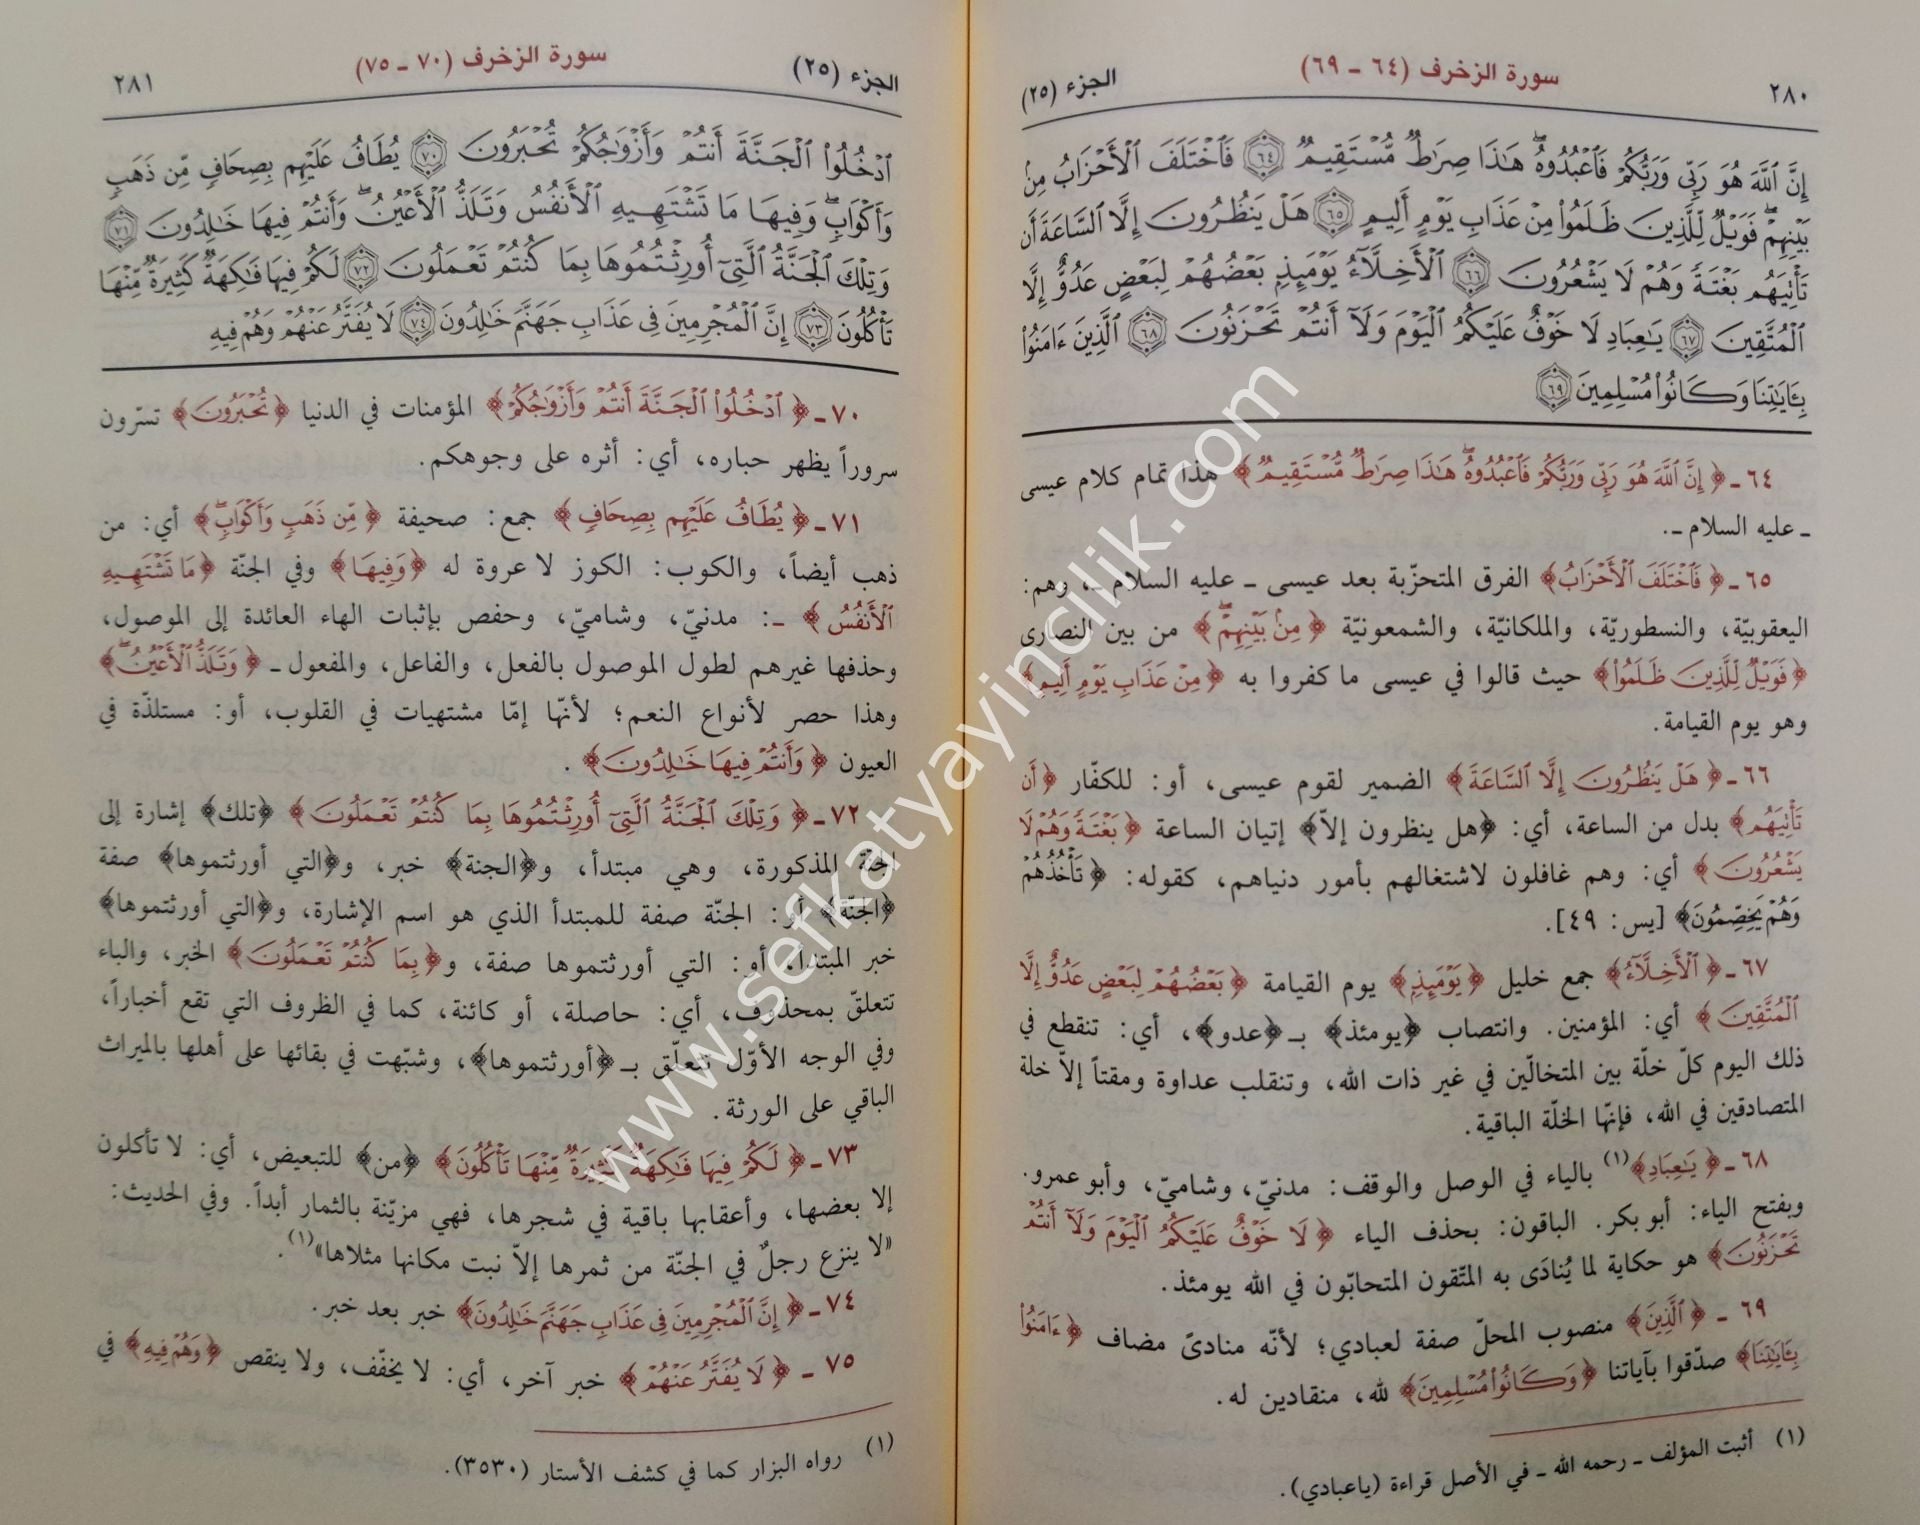 ٢٨٠
سورة الزخرف (٦٤ ـ ٦٩)
الجزء (٢٥)
إِنَّ ٱللَّهَ هُوَ رَبِّى وَرَبُّكُمْ فَٱعْبُدُوهُ ۚ هَٰذَا صِرَٰطٌ مُّسْتَقِيمٌ ۝٦٤ فَٱخْتَلَفَ ٱلْأَحْزَابُ مِنۢ
بَيْنِهِمْ ۖ فَوَيْلٌ لِّلَّذِينَ ظَلَمُوا۟ مِنْ عَذَابِ يَوْمٍ أَلِيمٍ ۝٦٥ هَلْ يَنظُرُونَ إِلَّا ٱلسَّاعَةَ أَن
تَأْتِيَهُم بَغْتَةً وَهُمْ لَا يَشْعُرُونَ ۝٦٦ ٱلْأَخِلَّآءُ يَوْمَئِذٍۭ بَعْضُهُمْ لِبَعْضٍ عَدُوٌّ إِلَّا
ٱلْمُتَّقِينَ ۝٦٧ يَٰعِبَادِ لَا خَوْفٌ عَلَيْكُمُ ٱلْيَوْمَ وَلَآ أَنتُمْ تَحْزَنُونَ ۝٦٨ ٱلَّذِينَ ءَامَنُوا۟
بِـَٔايَٰتِنَا وَكَانُوا۟ مُسْلِمِينَ ۝٦٩
٦٤ ـ ﴿إِنَّ ٱللَّهَ هُوَ رَبِّى وَرَبُّكُمْ فَٱعْبُدُوهُ ۚ هَٰذَا صِرَٰطٌ مُّسْتَقِيمٌ﴾ هذا تمام كلام عيسى
ـ عليه السلام ـ.
٦٥ ـ ﴿فَٱخْتَلَفَ ٱلْأَحْزَابُ﴾ الفرق المتحزّبة بعد عيسى ـ عليه السلام ـ، وهم:
اليعقوبيّة، والنسطوريّة، والملكانيّة، والشمعونيّة ﴿مِنۢ بَيْنِهِمْ ۖ﴾ من بين النصارى
﴿فَوَيْلٌ لِّلَّذِينَ ظَلَمُوا۟﴾ حيث قالوا في عيسى ما كفروا به ﴿مِنْ عَذَابِ يَوْمٍ أَلِيمٍ﴾
وهو يوم القيامة.
٦٦ ـ ﴿هَلْ يَنظُرُونَ إِلَّا ٱلسَّاعَةَ﴾ الضمير لقوم عيسى، أو: للكفّار ﴿أَن
تَأْتِيَهُم﴾ بدل من الساعة، أي: ﴿هل ينظرون إلاّ﴾ إتيان الساعة ﴿بَغْتَةً وَهُمْ لَا
يَشْعُرُونَ﴾ أي: وهم غافلون لاشتغالهم بأمور دنياهم، كقوله: ﴿تَأْخُذُهُمْ
وَهُمْ يَخِصِّمُونَ﴾ [يس: ٤٩].
٦٧ ـ ﴿ٱلْأَخِلَّآءُ﴾ جمع خليل ﴿يَوْمَئِذٍۭ﴾ يوم القيامة ﴿بَعْضُهُمْ لِبَعْضٍ عَدُوٌّ إِلَّا
ٱلْمُتَّقِينَ﴾ أي: المؤمنين. وانتصاب ﴿يومئذ﴾ بـ﴿عدو﴾، أي: تنقطع في
ذلك اليوم كلّ خلّة بين المتخالّين في غير ذات الله، وتنقلب عداوة ومقتاً إلاّ خلة
المتصادقين في الله، فإنّها الخلّة الباقية.
٦٨ ـ ﴿يَٰعِبَادِ﴾(١) بالياء في الوصل والوقف: مدنيّ، وشاميّ، وأبو عمرو.
وبفتح الياء: أبو بكر. الباقون: بحذف الياء ﴿لَا خَوْفٌ عَلَيْكُمُ ٱلْيَوْمَ وَلَآ أَنتُمْ
تَحْزَنُونَ﴾ هو حكاية لما يُنادَى به المتّقون المتحابّون في الله يومئذ.
٦٩ ـ ﴿ٱلَّذِينَ﴾ منصوب المحلّ صفة لعبادي؛ لأنّه منادىً مضاف ﴿ءَامَنُوا۟
بِـَٔايَٰتِنَا﴾ صدّقوا بآياتنا ﴿وَكَانُوا۟ مُسْلِمِينَ﴾ لله، منقادين له.
(١) أثبت المؤلف ـ رحمه الله ـ في الأصل قراءة (ياعبادي).
الجزء (٢٥)
سورة الزخرف (٧٠ ـ ٧٥)
٢٨١
ٱدْخُلُوا۟ ٱلْجَنَّةَ أَنتُمْ وَأَزْوَٰجُكُمْ تُحْبَرُونَ ۝٧٠ يُطَافُ عَلَيْهِم بِصِحَافٍ مِّن ذَهَبٍ
وَأَكْوَابٍ ۖ وَفِيهَا مَا تَشْتَهِيهِ ٱلْأَنفُسُ وَتَلَذُّ ٱلْأَعْيُنُ ۖ وَأَنتُمْ فِيهَا خَٰلِدُونَ ۝٧١
وَتِلْكَ ٱلْجَنَّةُ ٱلَّتِىٓ أُورِثْتُمُوهَا بِمَا كُنتُمْ تَعْمَلُونَ ۝٧٢ لَكُمْ فِيهَا فَٰكِهَةٌ كَثِيرَةٌ مِّنْهَا
تَأْكُلُونَ ۝٧٣ إِنَّ ٱلْمُجْرِمِينَ فِى عَذَابِ جَهَنَّمَ خَٰلِدُونَ ۝٧٤ لَا يُفَتَّرُ عَنْهُمْ وَهُمْ فِيهِ
٧٠ ـ ﴿ٱدْخُلُوا۟ ٱلْجَنَّةَ أَنتُمْ وَأَزْوَٰجُكُمْ﴾ المؤمنات في الدنيا ﴿تُحْبَرُونَ﴾ تسرّون
سروراً يظهر حباره، أي: أثره على وجوهكم.
٧١ ـ ﴿يُطَافُ عَلَيْهِم بِصِحَافٍ﴾ جمع: صحيفة ﴿مِّن ذَهَبٍ وَأَكْوَابٍ ۖ﴾ أي: من
ذهب أيضاً، والكوب: الكوز لا عروة له ﴿وَفِيهَا﴾ وفي الجنّة ﴿مَا تَشْتَهِيهِ
ٱلْأَنفُسُ﴾ ـ: مدنيّ، وشاميّ، وحفص بإثبات الهاء العائدة إلى الموصول،
وحذفها غيرهم لطول الموصول بالفعل، والفاعل، والمفعول ـ ﴿وَتَلَذُّ ٱلْأَعْيُنُ ۖ﴾
وهذا حصر لأنواع النعم؛ لأنّها إمّا مشتهيات في القلوب، أو: مستلذّة في
العيون ﴿وَأَنتُمْ فِيهَا خَٰلِدُونَ﴾.
٧٢ ـ ﴿وَتِلْكَ ٱلْجَنَّةُ ٱلَّتِىٓ أُورِثْتُمُوهَا بِمَا كُنتُمْ تَعْمَلُونَ﴾ ﴿تلك﴾ إشارة إلى
الجنّة المذكورة، وهي مبتدأ، و﴿الجنة﴾ خبر، و﴿التي أورثتموها﴾ صفة
﴿الجنّة﴾ أو: الجنّة صفة للمبتدأ الذي هو اسم الإشارة، و﴿التي أورثتموها﴾
خبر المبتدأ، أو: التي أورثتموها صفة، و﴿بِمَا كُنتُمْ تَعْمَلُونَ﴾ الخبر، والباء
تتعلّق بمحذوف، أي: حاصلة، أو كائنة، كما في الظروف التي تقع أخباراً،
وفي الوجه الأوّل تتعلّق بـ﴿أورثتموها﴾، وشبّهت في بقائها على أهلها بالميراث
الباقي على الورثة.
٧٣ ـ ﴿لَكُمْ فِيهَا فَٰكِهَةٌ كَثِيرَةٌ مِّنْهَا تَأْكُلُونَ﴾ ﴿من﴾ للتبعيض، أي: لا تأكلون
إلا بعضها، وأعقابها باقية في شجرها، فهي مزيّنة بالثمار أبداً. وفي الحديث:
«لا ينزع رجلٌ في الجنّة من ثمرها إلاّ نبت مكانها مثلاها»(١).
٧٤ ـ ﴿إِنَّ ٱلْمُجْرِمِينَ فِى عَذَابِ جَهَنَّمَ خَٰلِدُونَ﴾ خبر بعد خبر.
٧٥ ـ ﴿لَا يُفَتَّرُ عَنْهُمْ﴾ خبر آخر، أي: لا يخفّف، ولا ينقص ﴿وَهُمْ فِيهِ﴾ في
(١) رواه البزار كما في كشف الأستار (٣٥٣٠).
www.sefkatyayincilik.com